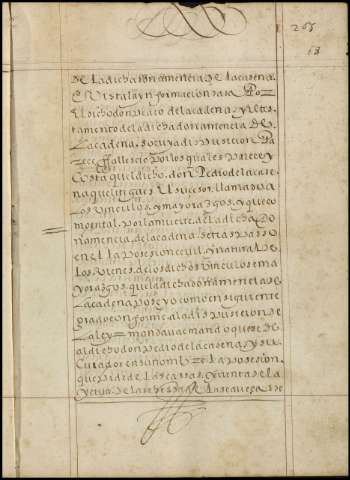 de la dicha doña mencia de la cadena
e vista la ynformacion dada Por
El dicho don Pedro de la cadena, y El tes
tamento de la dicha doña mencia de
La cadena, so cuya disPusicion Pa
rece fallescio Por los quales Parece y
Costa que El dicho, don Pedro de la cade
na que litiga es El sucesor, llamado a
Los Vinculos, y mayorazgos, y que co
mo tal, Por la muerte, de la dicha Do
ña mencia, de la cadena, se tras Passo
en el La Posesion ceuil, y natural De
Los Vienes, de los dichos Vinculos e ma
yorazgos, que la dicha doña mencia de
La cadena Poseyo como en siguiente
grado conforme a la disPusicion de
La ley = mandaua e mando que se de
al dicho don Pedro de la cadena, y a su
Curador en su nombre = La Posesion,
que Pide de Las casas, y Vinta de la
de la Caueça de